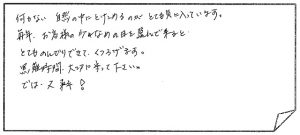 何もない 自然の中にとけこめるのが とても気に入っています。
毎年、お客様の少なめの日を選んで来ると
とてものんびりできて、くつろげます。
無難時間、大切に来って下さい。
では、又来年!